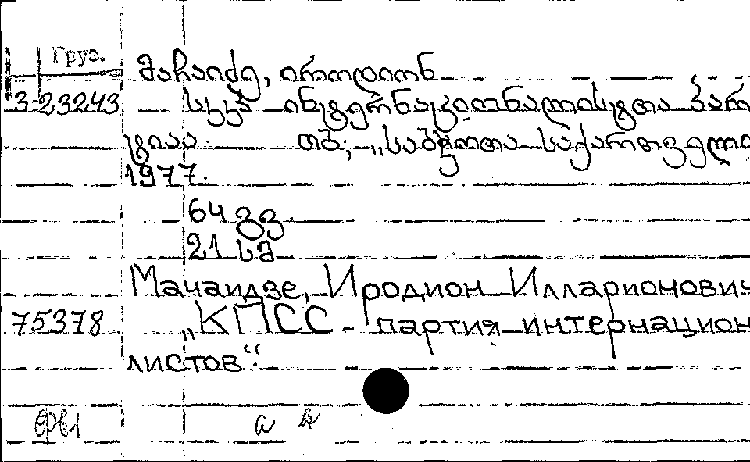 Груз.
მაჩაიძე, იროდიონ
3-23243 სკკპ ინტერნაციონალისტთა პარ
ტიაა თბ., „საბჭოთა საქართველო
1977.
64 გვ
21 სმ
Мачаидзе, Иродион Илларионович
75378 „КПСС - партия интернацион
листов".